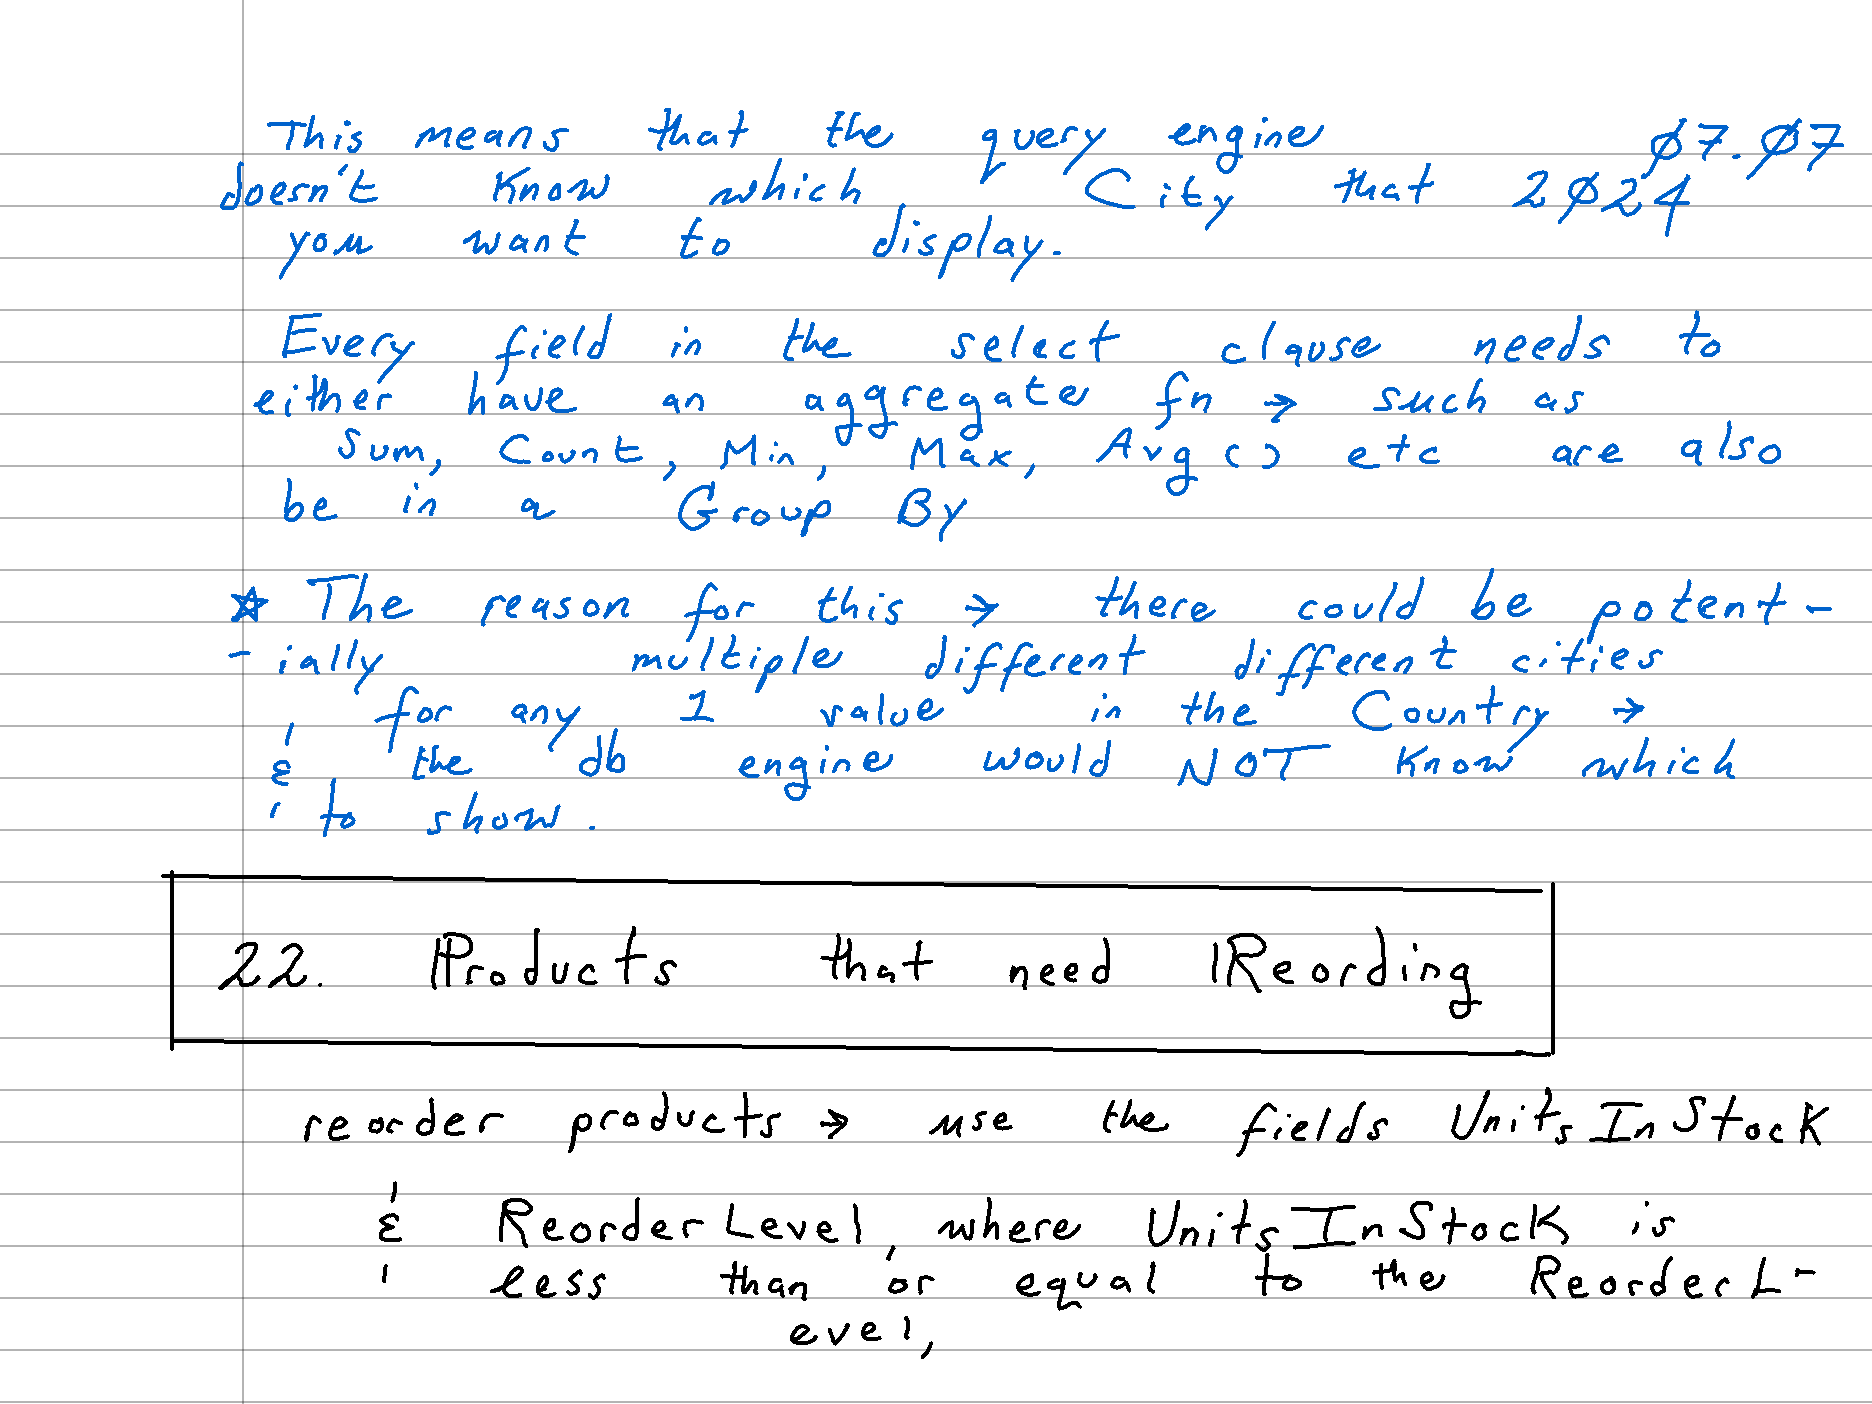 This means that the query engine ø7.ø7
doesn't know which City that 2ø24
you want to display.
Every field in the select clause needs to
either have an aggregate fn → such as
Sum, Count, Min, Max, Avg() etc are also
be in a Group By
☆ The reason for this → there could be potent-
-ially multiple different different cities
for any 1 value in the Country →
& the db engine would NOT know which
to show.
22. Products that need Reording
reorder products → use the fields UnitsInStock
& ReorderLevel, where UnitsInStock is
less than or equal to the ReorderL-
evel,